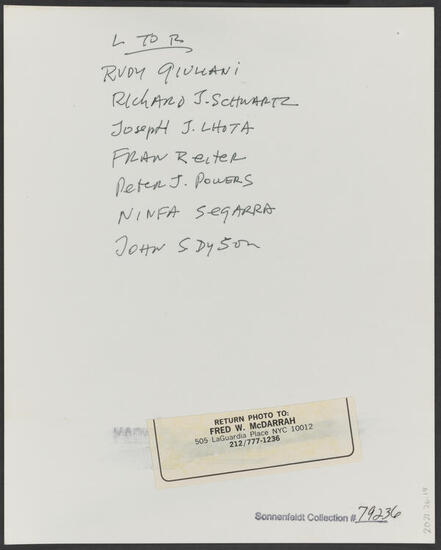 L TO R
RUDY GIULIANI
RICHARD J. SCHWARTZ
JOSEPH J. LHOTA
FRAN REITER
PETER J. POWERS
NINFA SEGARRA
JOHN S DYSON
RETURN PHOTO TO:
FRED W. McDARRAH
505 LaGuardia Place NYC 10012
212/777-1236
Sonnenfeldt Collection # 79236
2021.26.19